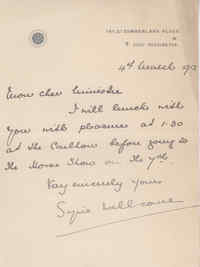 GREAT CUMBERLAND PLACE
W
PADDINGTON
4th March 191
Mon cher Ministre
I will lunch with
you with pleasure at 1.30
at the Carlton before going to
the Horse Show on the 7th.
Very sincerely yours
Syrie Wellcome